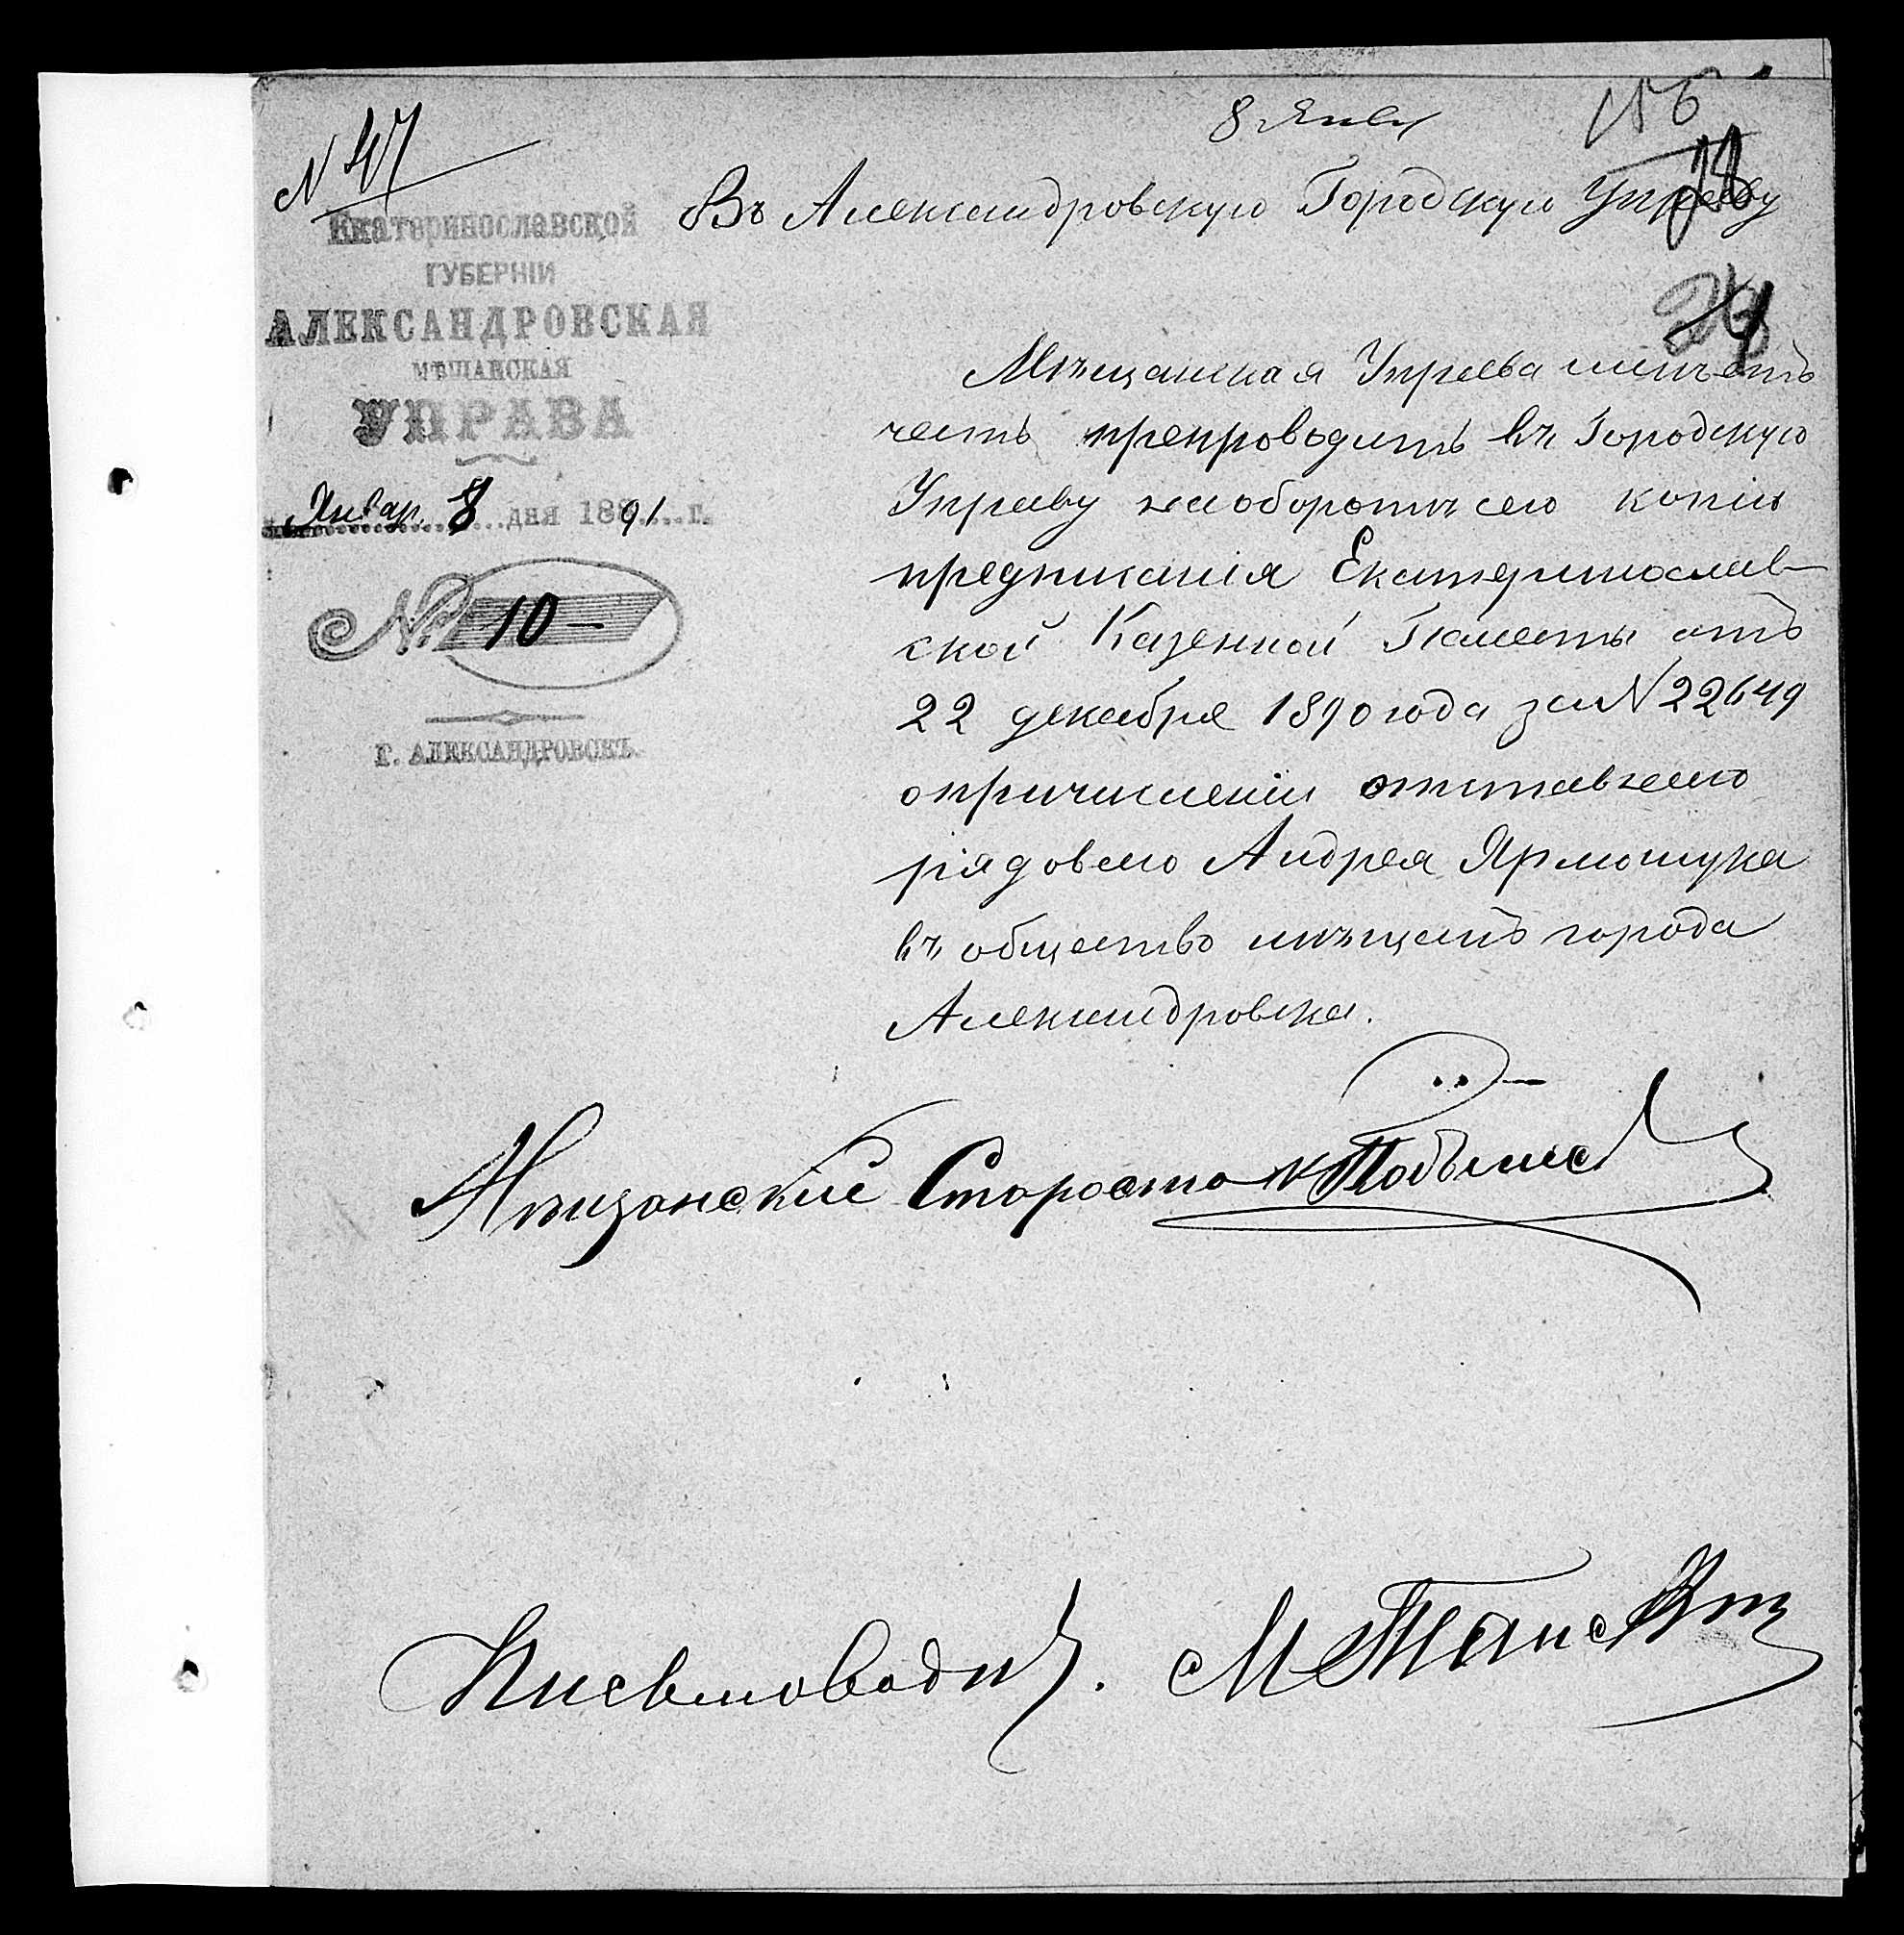 N 47
8 Янв
156
Въ Александровскую Городскую Управу
24
Екатеринославской
ГУБЕРНІИ
АЛЕКСАНДРОВСКАЯ
МѢЩАНСКАЯ
УПРАВА
Январ. 8 дня 1891 г.
№ 10 —
Г. АЛЕКСАНДРОВСКЪ.
Мѣщанская Управа имѣетъ
честь препроводить въ Городскую
Управу на оборотѣ сего копію
предписанія Екатеринослав-
ской Казенной Палаты отъ
22 декабря 1890 года за N 22649
о причисленіи отставного
рядового Андрея Ярмощука
въ общество мѣщанъ города
Александровска.
Мѣщанскій Староста
Письмоводит. М